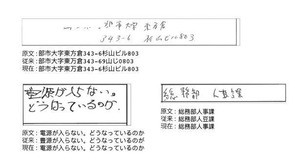 343-6 杉山ビル803
原文:部市大字東万倉343-6杉山ビル803
従来:部市大字東方倉343-69山じ0803
現在:部市大字東万倉343-6杉山ビル803
電源が入らない。
どうなっているのか
原文:電源が入らない。どうなっているのか
従来:窓源が入らない。どうなっているのが
現在:電源が入らない。どうなっているのか
総務部 人事課
原文:総務部人事課
従来:総幹部人豆課
現在:総務部人事課